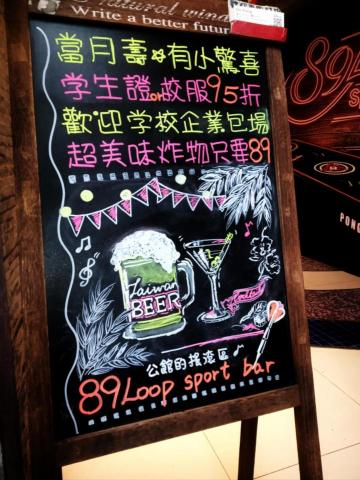 natural wind
Write a better futur
當月壽☆有小驚喜
学生證or校服95折
歡迎学校企業包場
超美味炸物只要89
Taiwan
BEER
公館的接港區
89Loop sport bar
89
PONG